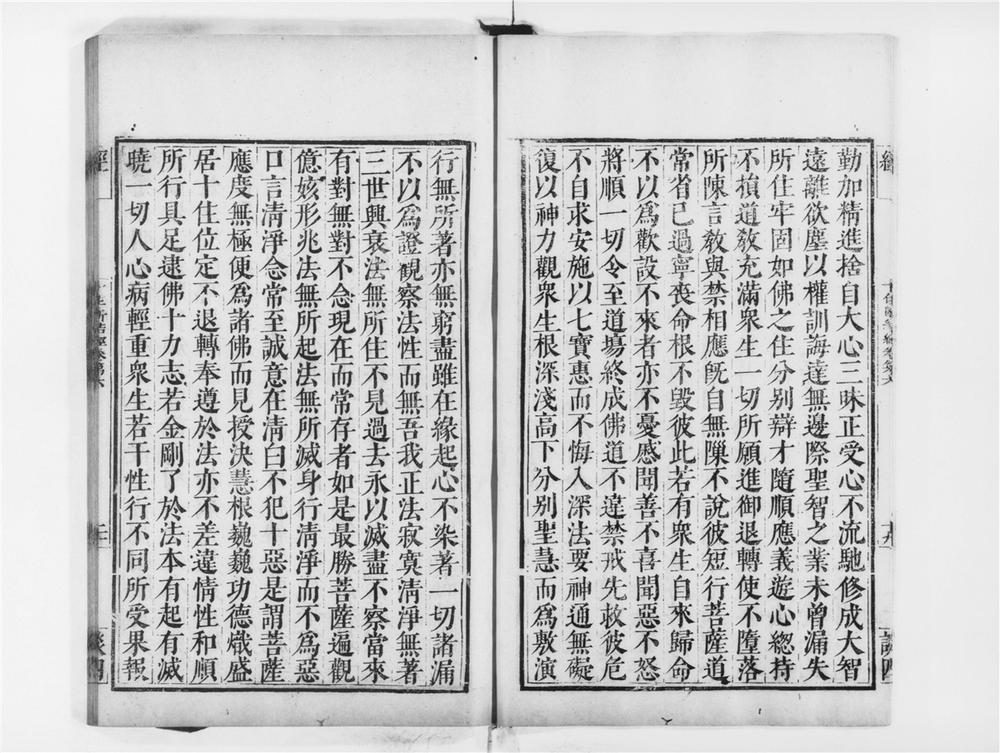 勤加精進捨自大心三昧正受心不流馳修成大智
遠離欲塵以權訓誨達無邊際聖智之業未曾漏失
所住牢固如佛之住分别辯才隨順應義遊心緫持
不損道敎充滿衆生一切所願進御退轉使不墮落
所陳言敎與禁相應旣自無𨻶不說彼短行菩薩道
常省己過寧喪命根不毀彼此若有衆生自來歸命
不以爲歡設不來者亦不憂慼聞善不喜聞惡不怒
將順一切令至道場終成佛道不違禁戒先救彼危
不自求安施以七寶惠而不悔入深法要神通無礙
復以神力觀衆生根深淺高下分别聖慧而爲敷演
行無所著亦無窮盡雖在緣起心不染著一切諸漏
不以爲證觀察法性而無吾我正法寂寞清淨無著
三世興衰法無所住不見過去永以滅盡不察當來
有對無對不念現在而常存者如是最勝菩薩遍觀
億姟形兆法無所起法無所滅身行清淨而不爲惡
口言清淨念常至誠意在清白不犯十惡是謂菩薩
應度無極便爲諸佛而見授決慧根巍巍功德熾盛
居十住位定不退轉奉遵於法亦不差違情性和順
所行具足逮佛十力志若金剛了於法本有起有滅
曉一切人心病輕重衆生若干性行不同所受果報
經